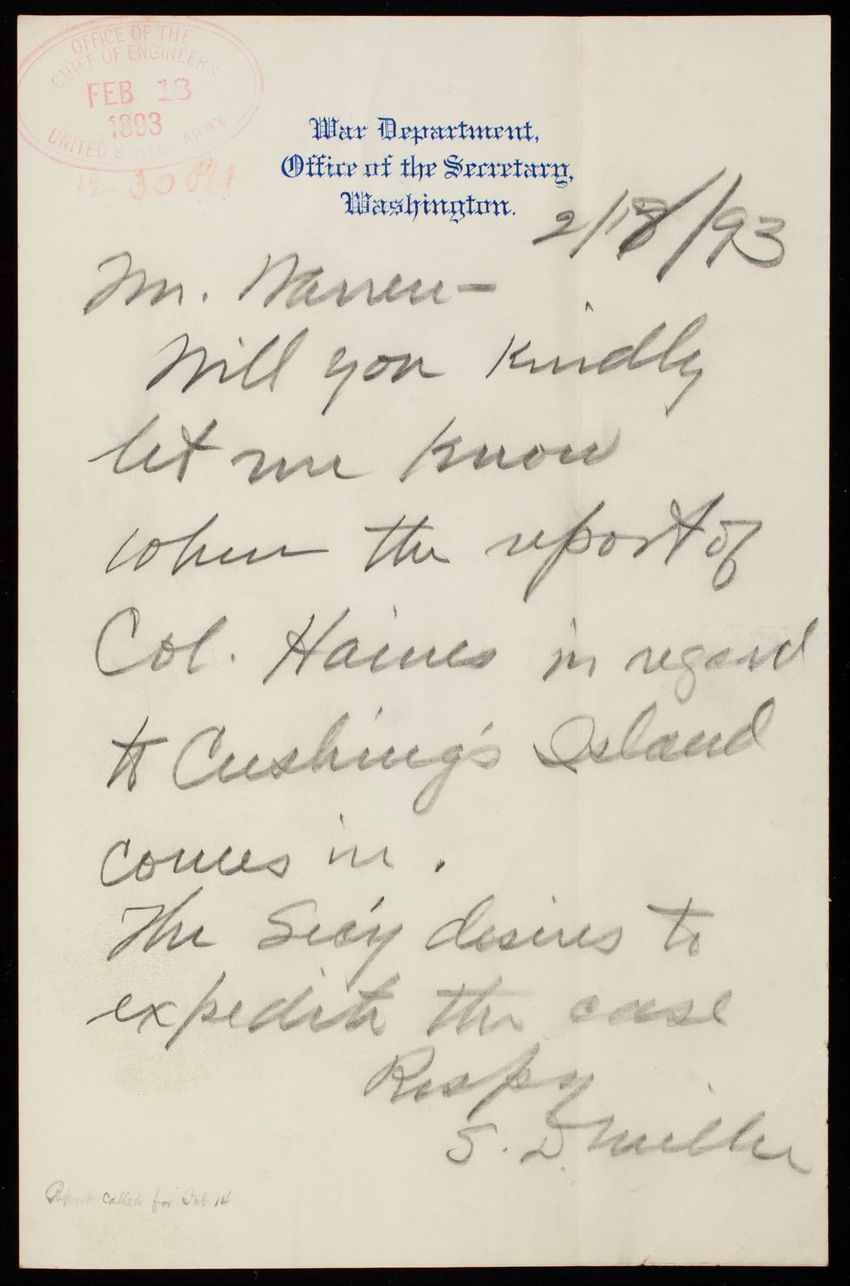 OFFICE OF THE
CHIEF OF ENGINEERS
FEB 13
1893
UNITED STATES ARMY
12 30 PM
War Department,
Office of the Secretary,
Washington.
2/18/93
Mr. Warren—
Will you kindly
let me know
when the report of
Col. Haines in regard
to Cushing's Island
comes in.
The Sec'y desires to
expedite the case
Respy
S. D. Miller
Report called for Feb 14